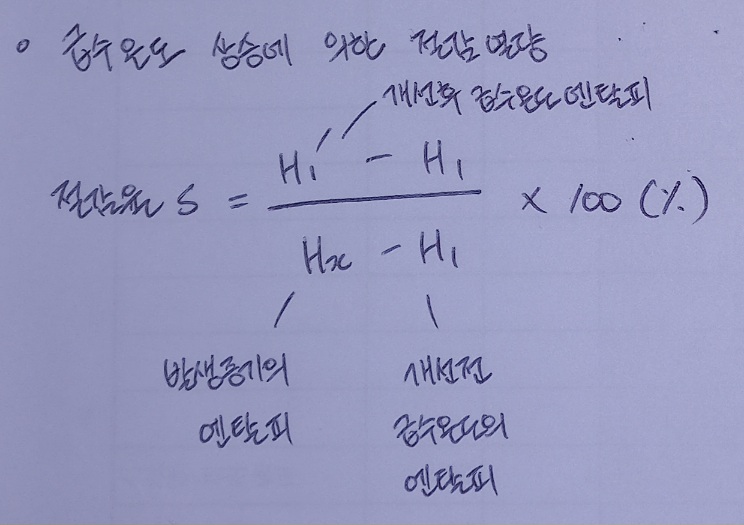 ◦ 급수온도 상승에 의한 절감 열량
개선후 급수온도 엔탈피
H₁′ − H₁
절감율 S = ――― × 100 (%)
Hx − H₁
발생증기의 개선전
엔탈피 급수온도의
엔탈피